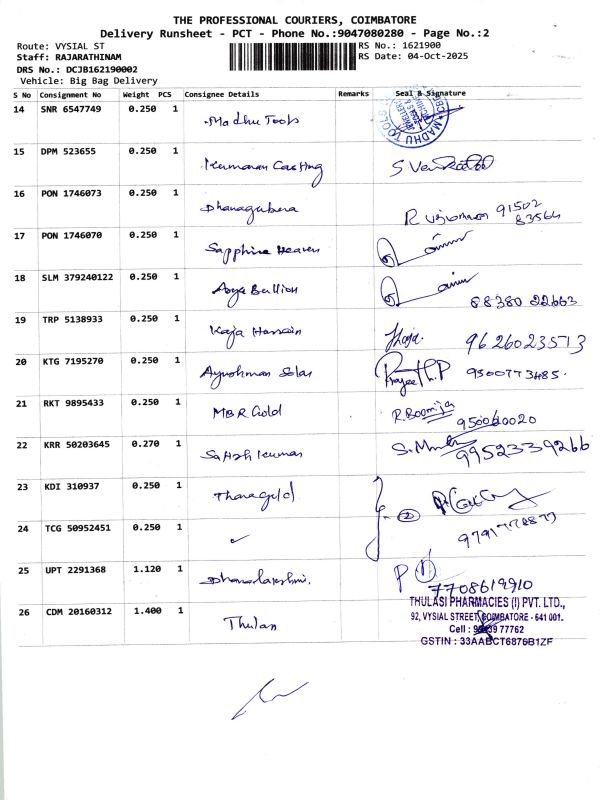 THE PROFESSIONAL COURIERS, COIMBATORE
Delivery Runsheet - PCT - Phone No.:9047080280 - Page No.:2
Route: VYSIAL ST RS No.: 1621900
Staff: RAJARATHINAM RS Date: 04-Oct-2025
DRS No.: DCJB162190002
Vehicle: Big Bag Delivery
S No Consignment No Weight PCS Consignee Details Remarks Seal & Signature
14 SNR 6547749 0.250 1 Madhu Tools MADHU TOOLS
15 DPM 523655 0.250 1 Kumaran Casting
16 PON 1746073 0.250 1 Dhanagubera 91502
83564
17 PON 1746070 0.250 1 Sapphire Heaven
18 SLM 379240122 0.250 1 Arya Bullion
88380 22663
19 TRP 5138933 0.250 1 Kaja Hussain 9626023573
20 KTG 7195270 0.250 1 Ayushman Solar 9500773485.
21 RKT 9895433 0.250 1 MBR Gold R. Boomija
22 KRR 50203645 0.270 1 Satish kumar 9952339266
23 KDI 310937 0.250 1 Thangagold 2
24 TCG 50952451 0.250 1
25 UPT 2291368 1.120 1 Dhanalakshmi.
7708619910
26 CDM 20160312 1.400 1 Thulasi THULASI PHARMACIES (I) PVT. LTD.,
92, VYSIAL STREET, COIMBATORE - 641 001.
Cell : 77762
GSTIN : 33AABCT6876B1ZF